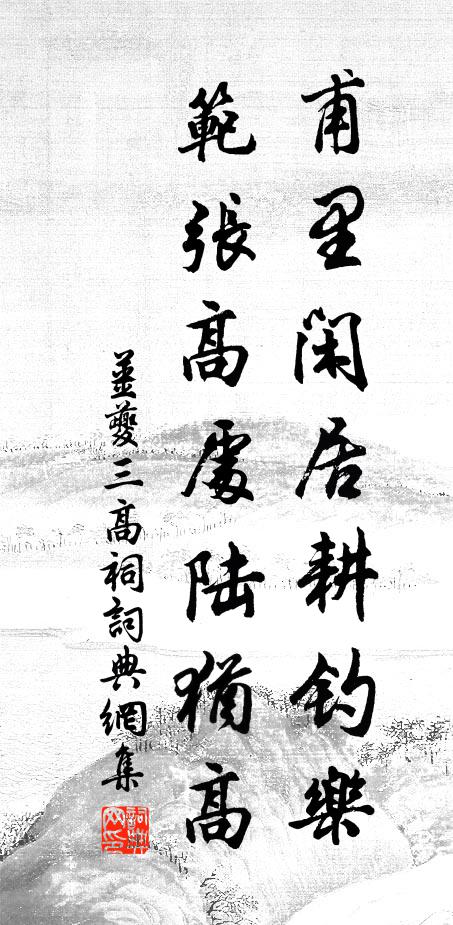 甫里閑居耕釣樂
範張高處陸猶高
薑夔三高祠詞典網集